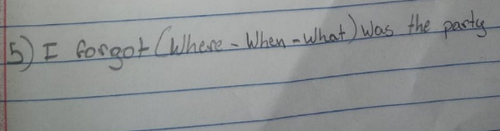 5) I forgot (Where - When - What) was the party